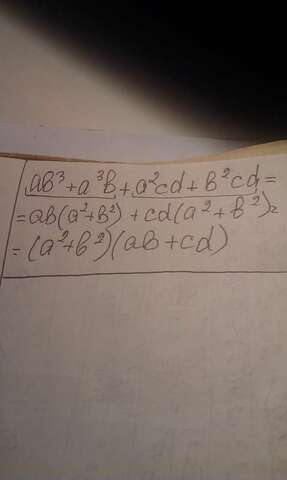 ab³+a³b+a²cd+b²cd=
=ab(a²+b²)+cd(a²+b²)=
=(a²+b²)(ab+cd)